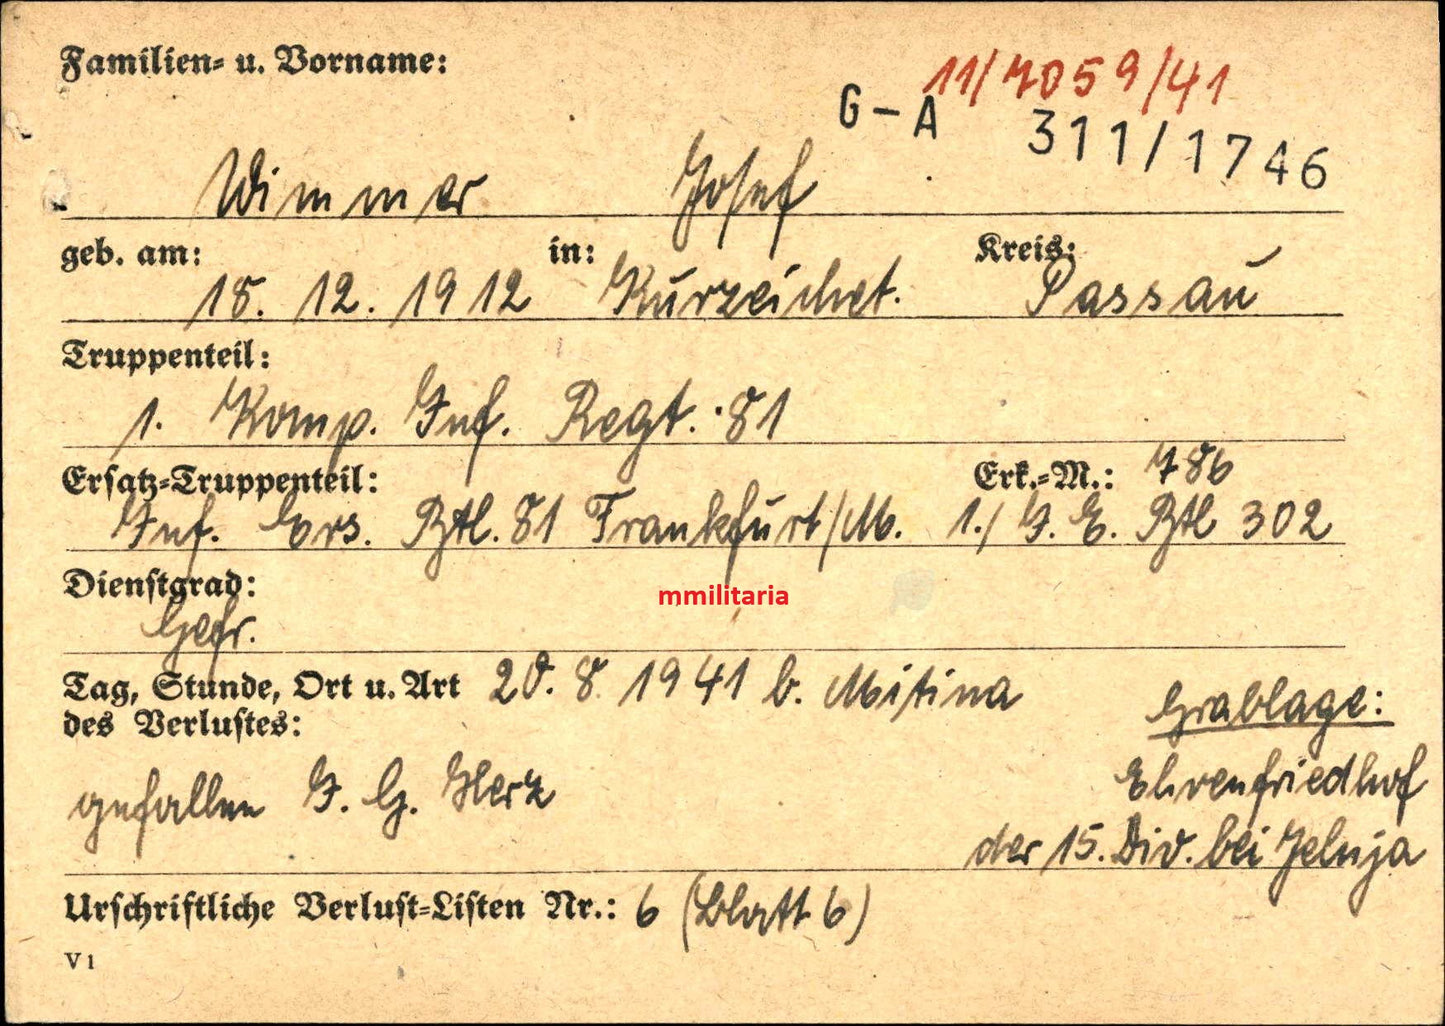 Familien- u. Vorname:
11/7059/41
G-A 311/1746
Wimmer Josef
geb. am: in: Kreis:
18. 12. 1912 Kurzeichet. Passau
Truppenteil:
1. Komp. Inf. Regt. 81
Ersatz-Truppenteil: Erk.-M.: 786
Inf. Ers. Btl. 81 Frankfurt/M. 1./ J. E. Btl 302
Dienstgrad:
mmilitaria
Gefr.
Tag, Stunde, Ort u. Art 20. 8. 1941 b. Mitina
des Verlustes:
Grablage:
gefallen I. G. Herz
Ehrenfriedhof
der 15. Div. bei Jelnja
Urschriftliche Verlust-Listen Nr.: 6 (Blatt 6)
V 1